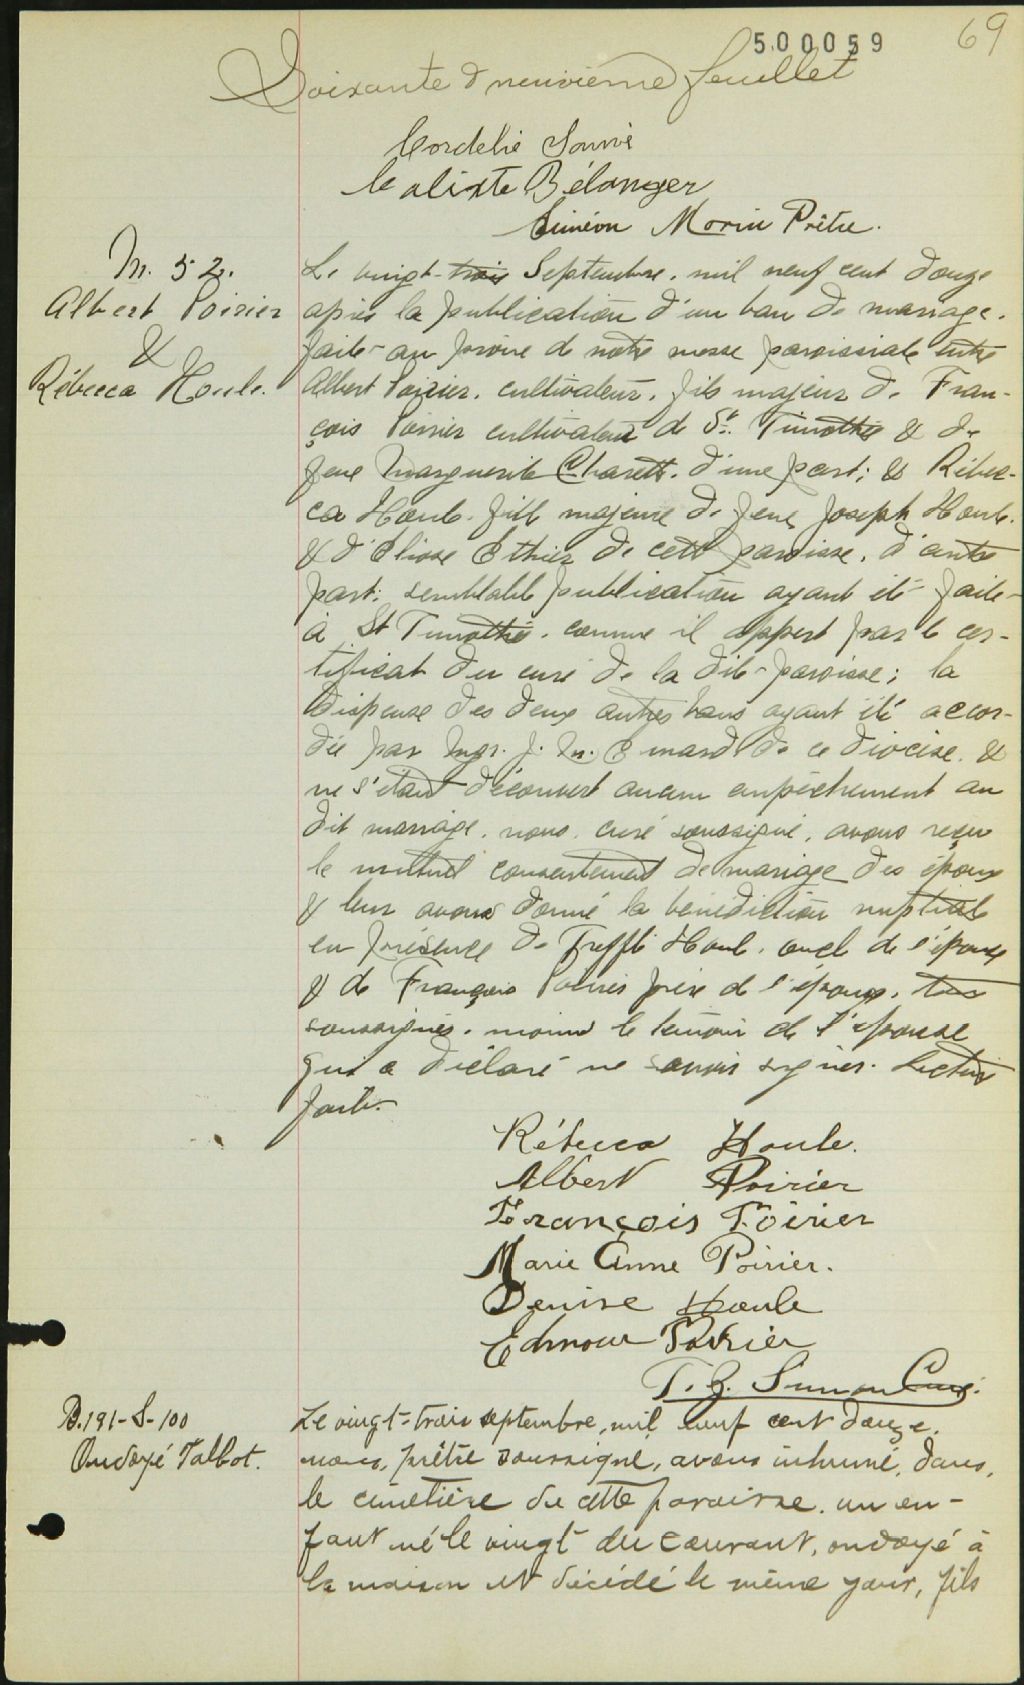 500059
69
Soixante & neuvième feuillet
Cordelie Sauvé
Calixte Bélanger
Siméon Morin Prêtre.
M. 52.
Albert Poirier
&
Rébecca Houle.
Le vingt-trois Septembre. mil neuf cent douze
après la publication d'un ban de mariage.
faite au prône de notre messe paroissiale entre
Albert Poirier. cultivateur. fils majeur de Fran-
çois Poirier cultivateur de St. Timothée & de
feue Marguerite Charett. d'une part; & Rébec-
ca Houle. fille majeure de feue Joseph Houle.
& d'Elisse Ethier de cette paroisse. d'autre
part; semblable publication ayant été faite
à St Timothée. comme il appert par le cer-
tificat du curé de la dite paroisse; la
dispense des deux autres bans ayant été accor-
dée par Mgr. J. M. Emard de ce diocèse. &
ne s'étant découvert aucun empêchement au
dit mariage. nous. curé soussigné. avons reçu
le mutuel consentement de mariage des époux
& leur avons donné la bénédiction nuptiale
en présence de Trefflé Houle. oncle de l'épouse
& de François Poirier père de l'époux.
soussignés. moins le témoin de l'épouse
qui a déclaré ne savoir signer. Lecture
faite.
Rébecca Houle.
Albert Poirier
François Poirier
Marie Anne Poirier.
Denise Houle
Edmour Poirier
T. Z. Curé.
B. 191-S-100
Ondoyé Talbot.
Le vingt-trois septembre, mil neuf cent douze,
nous, prêtre soussigné, avons inhumé, dans,
le cimetière de cette paroisse. un en-
fant né le vingt du courant, ondoyé à
la maison et décédé le même jour, fils